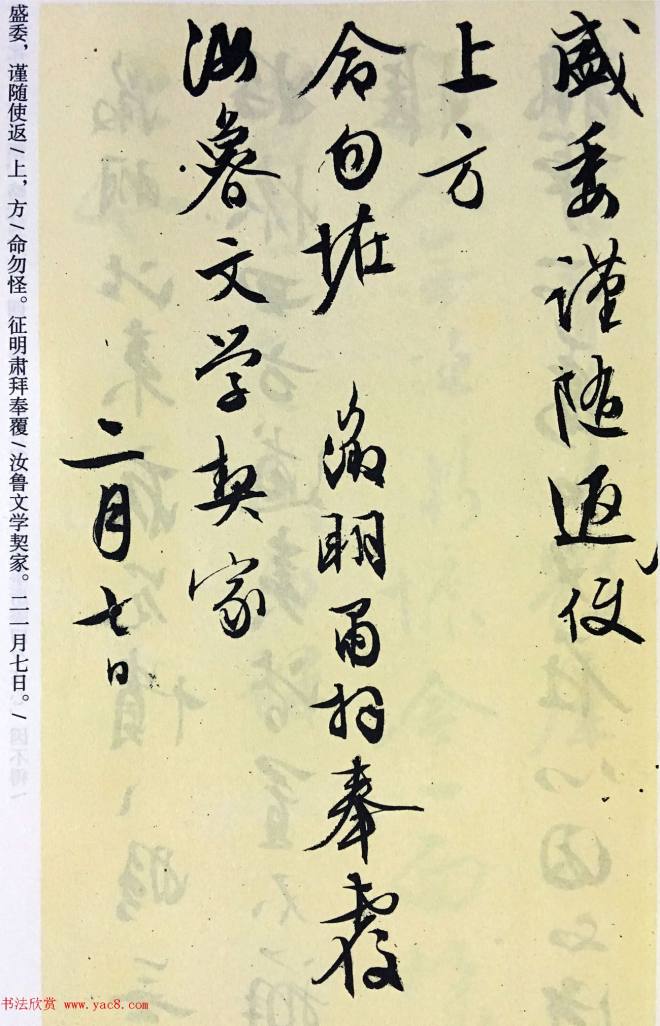 盛委謹随返使
上方
命勿怪 徵明肅拜奉覆
汝魯文学契家
二月七日
盛委，谨随使返/上，方/命勿怪。征明肃拜奉覆/汝鲁文学契家。二一月七日。/
书法欣赏 www.yac8.com